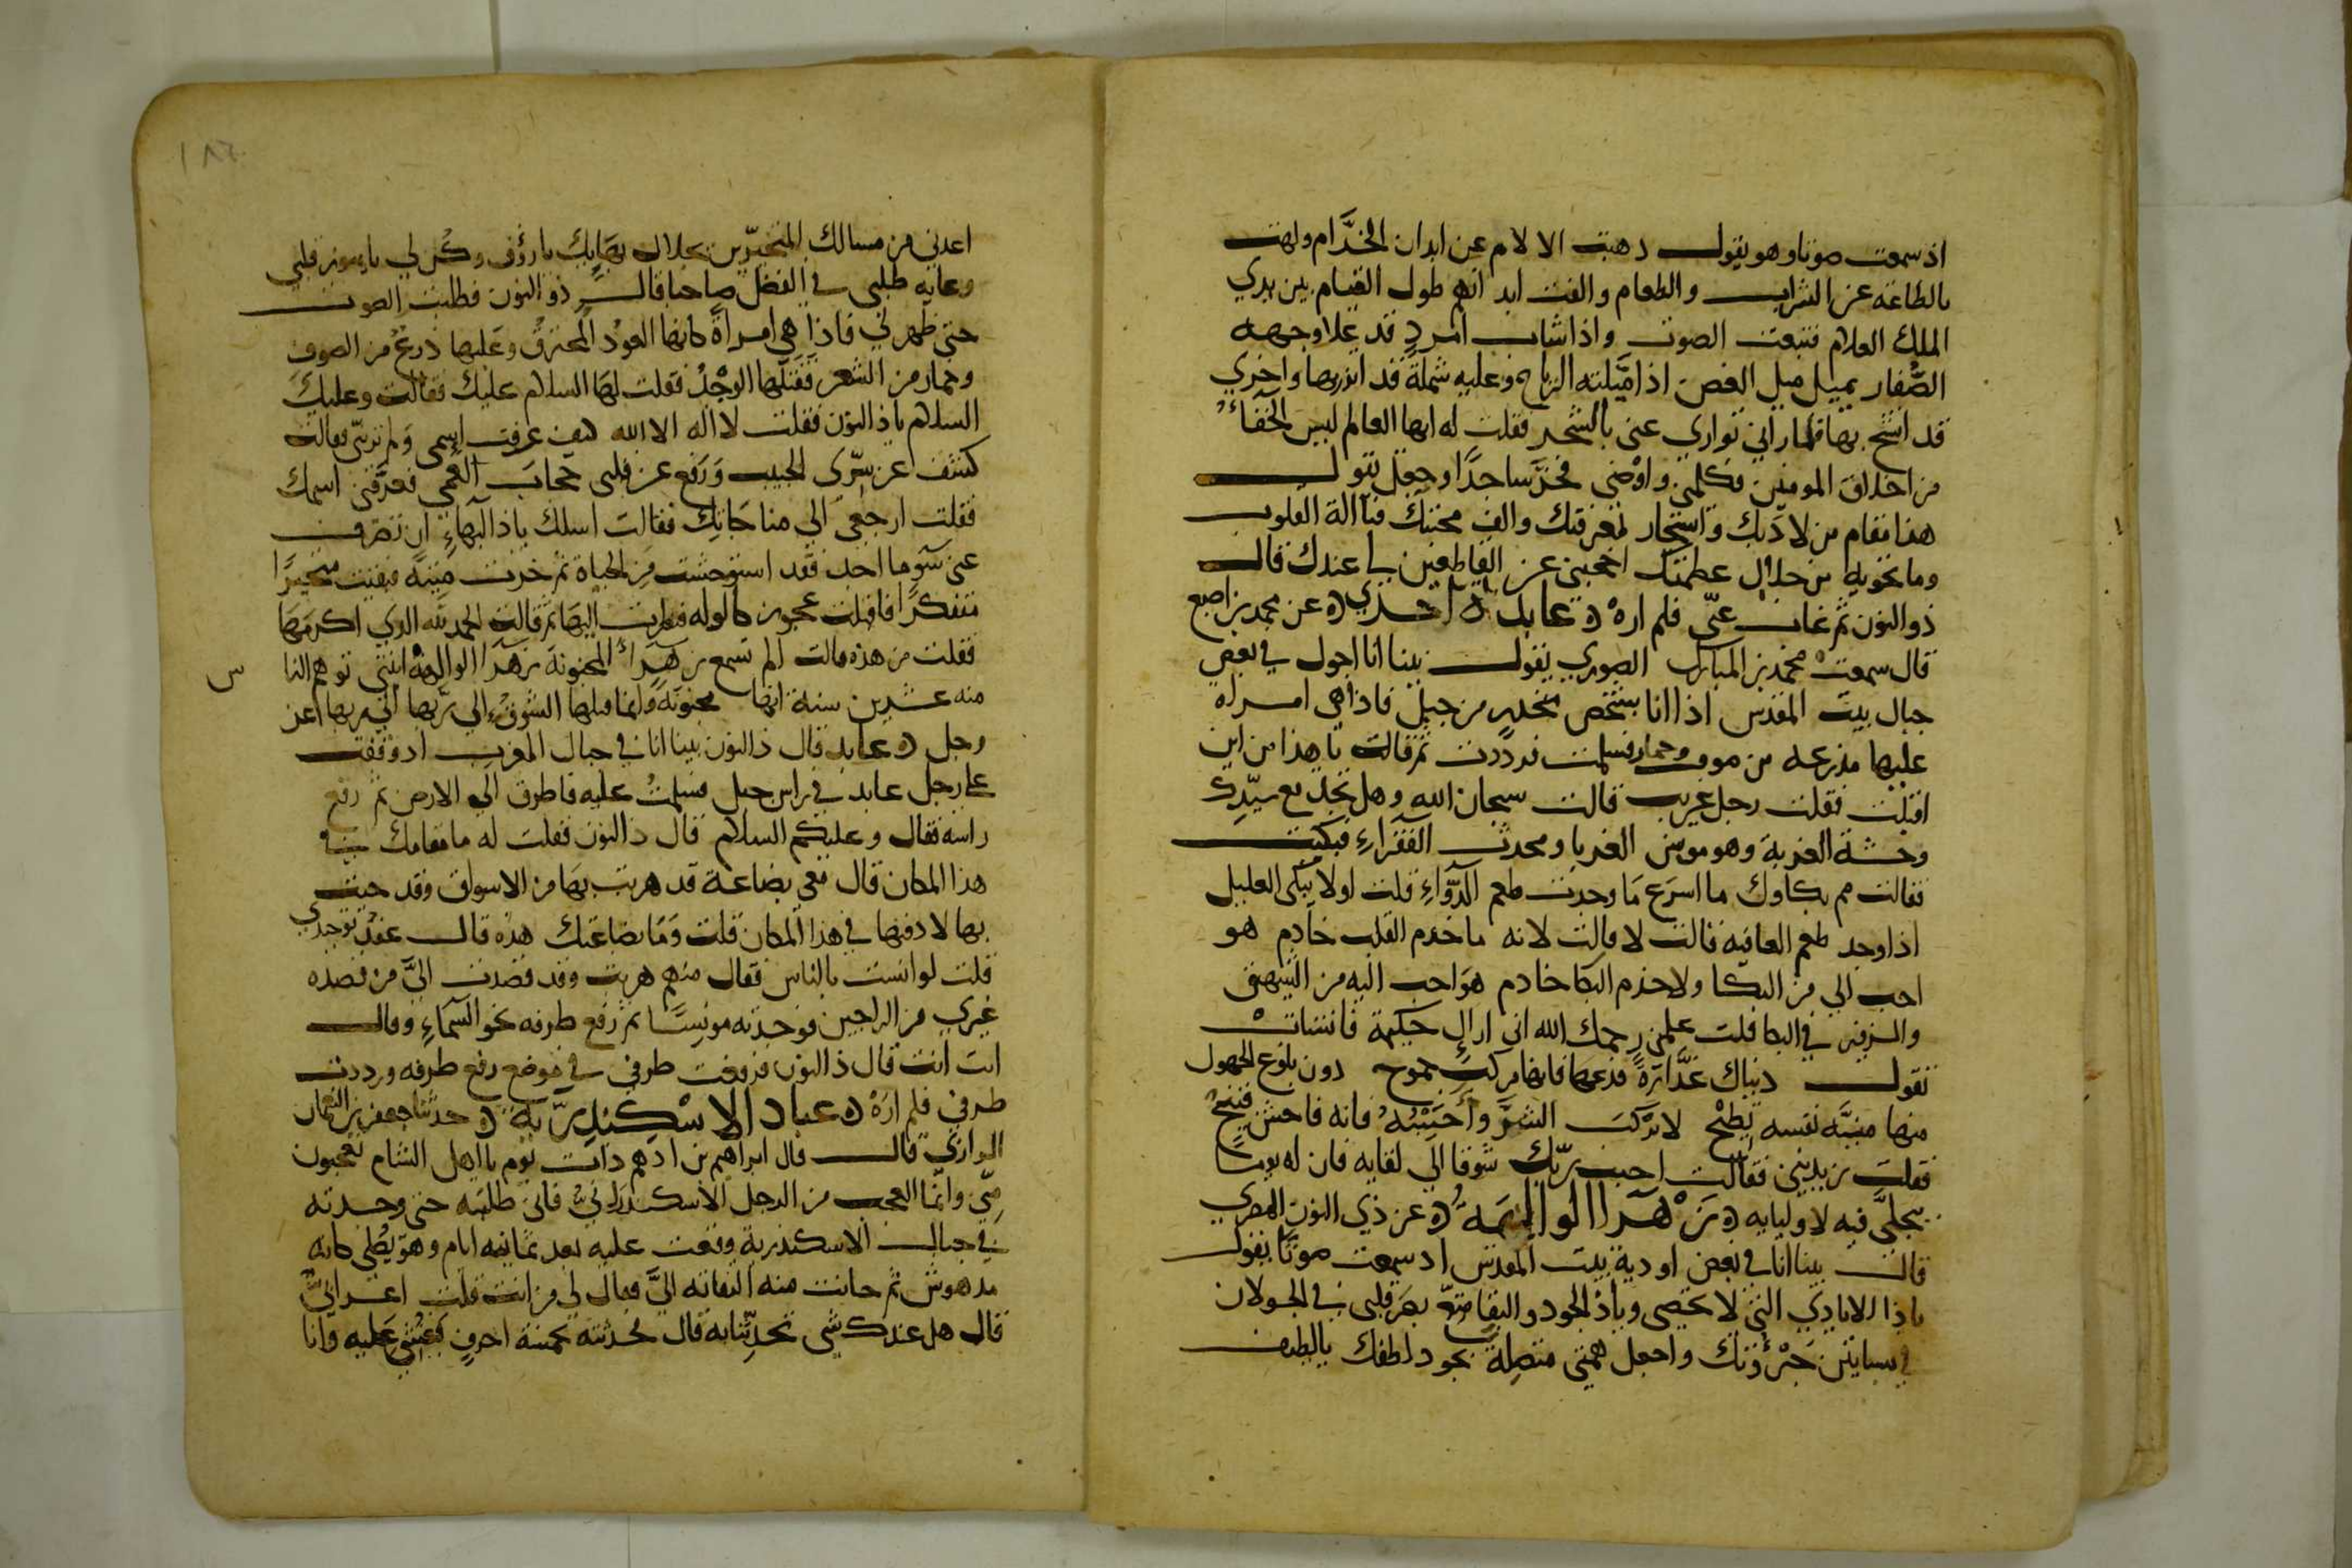 اذ سمعت صوتا وهو يقول ذهبت الالام عن ابدان الخدَّام ولهت
بالطاعة عن الشراب والطعام والفت ابدانهم طول القيام بين يدي
الملك العلام فتبعت الصوت واذا شاب امرد قد علا وجهه
الصُّفار يميل ميل الغصن اذا ميَّلته الرياح وعليه شملة قد اتزر بها واخري
قد اتشح بها فلما راني تواري عني بالشجر فقلت له ايها العالم ليس الجَفَاءُ
من اخلاق المومنين فكلمني واوصني فخرَّ ساجدًا وجعل يقول
هذا مقام من لاذ بك واستجار بمعرفتك والف محبتك فيا اله القلوب
وما تحويه من جلال عظمتك احجبني عن القاطعين لي عندك قال
ذو النون ثم غاب عنّي فلم اره ه عابدة اخري ه عن محمد بن اصبع
قال سمعت محمد بن المبارك الصوري يقول بينا انا اجول في بعض
جبال بيت المقدس اذا انا بشخص منحدر من جبل فاذا هي امراه
عليها مدرعه من صوف وخمار فسلمت فرددت ثم قالت يا هذا من اين
اقبلت فقلت رجل غريب قالت سبحان الله وهل تجد مع سيّدك
وحشة الغربة وهو مونس الغربا ومحدث الفقراءِ فبكيت
فقالت مم بكاوك ما اسرع مَا وجدت طعم الدَّوَاءِ قلت اولا يبكى العليل
اذا وجد طعم العافيه قالت لا قالت لانه ما خدم القلب خادم هو
احب الي من البكا ولا خدم البكا خادم هوَ احب اليه من الشهيق
والزفير في البكا قلت علمني رحمك الله اني اراك حكيمة فانشاتْ
تقول دنياك غدَّارَةً فدعها فانها مركب جموح دون بلوغ الجهول
منها منيَّة نفسه تطيح لا تركب الشرَّ واجتنبْهُ فانه فاحش قبيحُ
فقلت زيديني فقالت احبب ربّك شوقا الي لقايه فان له يومًا
يتجلَّى فيه لاوليايه ه زَهْرَا الوَالِهَةُ ه عن ذي النون المصري
قال بينا انا في بعض اودية بيت المقدس اذ سمعت صوتًا يقول
ياذا الايادي التي لا تحصى وياذا الجود والبقا متعّ بصَر قلبي في الجولان
في بساتين جَبَرُوتك واجعل همتي متصِلة بجود لطفك يا لطيف
اعذني من مسالك المتحيّرين بجلال بهَايِك يا رؤف وكن لي يا مونس قلبي
وغايه طلبي في الفضل صاحبا قال ذو النون فطلبت الصوت
حتي ظهر لي فاذا هي امراةً كانها العوْد المحترقُ وعَليها درعٌ من الصوف
وخمار من الشعر فقتلها الوجْدُ فقلت لهَا السلام عليك فقالت وعليك
السلام ياذا النون فقلت لا اله الا الله كيف عرفت اسمى وَلم تريني فقالت
كشف عن سرّى الحبيب وَرفع عن قلبى حجابَ العمى فعرَّفني اسمك
فقلت ارجعى الي مناجَاتِك فقالت اسلك ياذا البَهاءِ ان تصرف
عني سَوء ما اجد فقد استوحشت مِن الحياة ثم خرت ميّتة فبقيت متحيّرًا
متفكرًا فاقبلت عجوز كالوله فنظرت اليهَا ثم قالت الحمد لله الذي اكرمَهَا
فقلت من هذه قالت الم تسمع بزهَرَاءُ المجنونةَ زهَرَا الوالهة ابنتي توهم النا س
منه عشرين سنة انها مجنونَة وانما قتلها الشوقُ الي ربّها اني ربها عز
وجل ه عابد قال ذا النون بينا انا في جبال المغرب اذ وقفت
على رجل عابد في راس جبل فسلمتُ عليه فاطرق الي الارض ثم رفع
راسه فقال وعليكم السلام قال ذا النون فقلت له ما مقامك في
هذا المكان قال معي بضاعَة قد هربت بهَا من الاسواق وقد جيت
بها لادفنها في هذا المكان قلت وَمَا بضاعتك هذه قال عقد توحيدي
قلت لو انست بالناس فقال منهم هربت وقد قصدت اليَّ من قصده
غيري من الراجين فوجدته مونِسًا ثم رفع طرفه نحو السَّماءِ وقال
انت انت قال ذا النون فرفعت طرفي في موضع رفع طرفه ورددت
طرفي فلم ارَهْ ه عباد الاسْكندِريّة ه حدثنا جعفر بن النعمان
الرازي قال قال ابراهيم بن ادهم ذات يوم يا اهل الشام تعجبون
مِنّي وانّما العجب من الرجل الاسكندراني فاني طلبته حتى وجدته
في جبال الاسكندرية وقعت عليه بعد ثمانيه ايام وهوَ يُصَلي كانه
مدهوش ثم حانت منه التفاته اليَّ فقال لي من انت قلت اعرابيٌّ
قال هل عندك شي تحدِّثنا به قال فحدثته بخمسة احرفٍ فغشي عَليه وانا